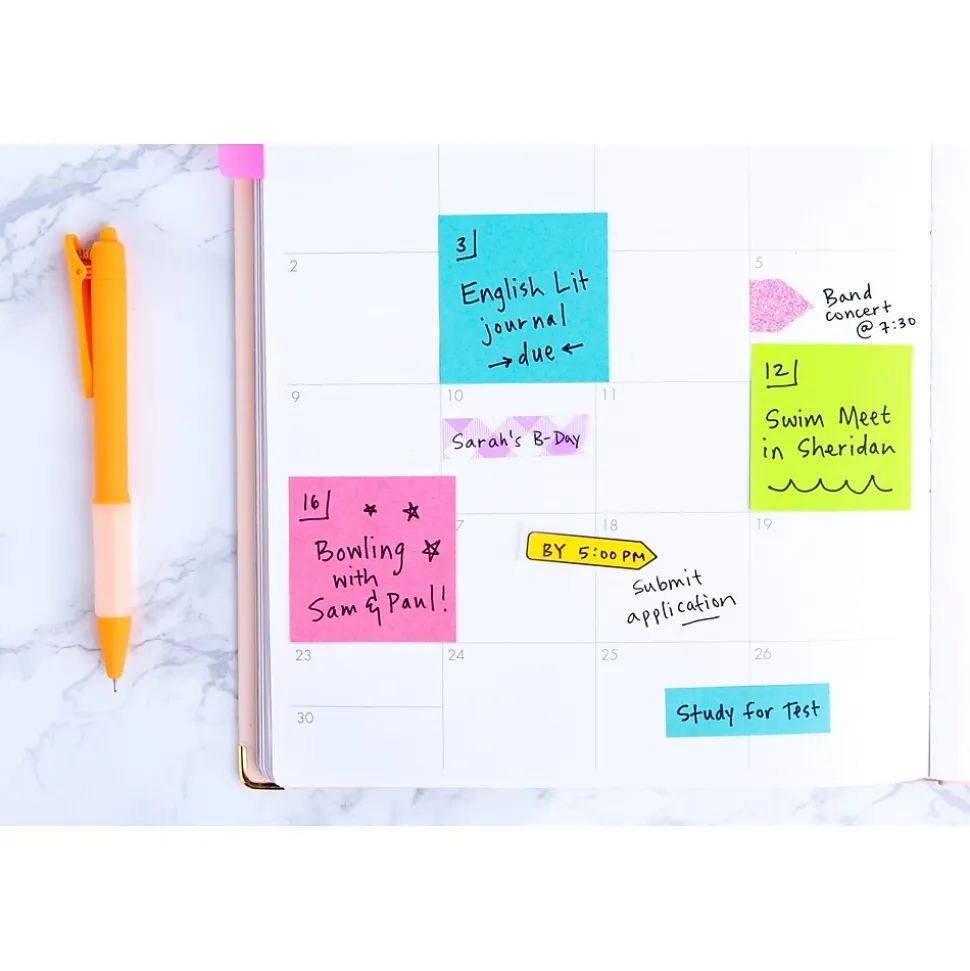 2
3
English Lit
journal
→ due ←
5
Band
concert
@ 7:30
9
10
Sarah's B-Day
11
12
Swim Meet
in Sheridan
16
Bowling
with
Sam & Paul!
7
BY 5:00 PM
18
Submit
application
19
23
24
25
26
Study for Test
30